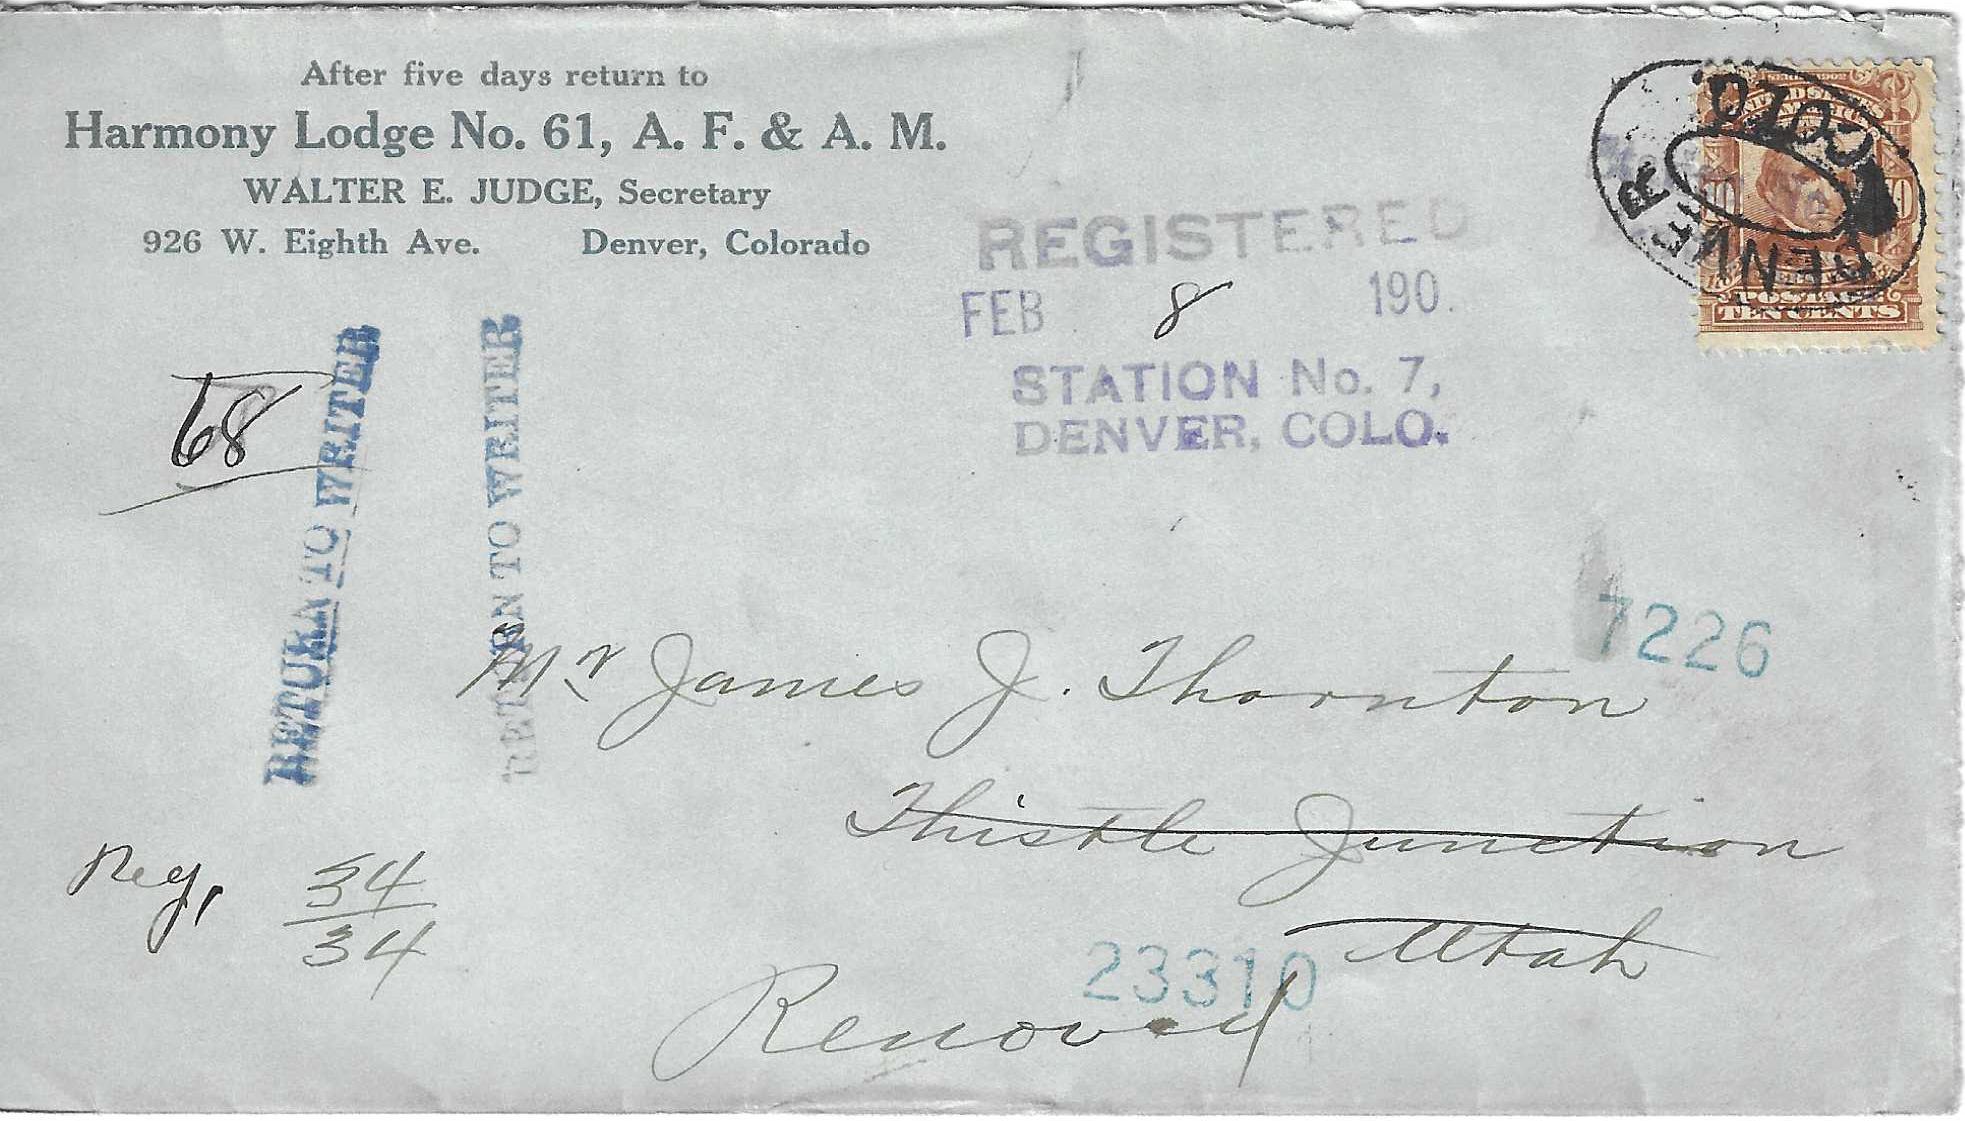 After five days return to
Harmony Lodge No. 61, A. F. & A. M.
WALTER E. JUDGE, Secretary
926 W. Eighth Ave. Denver, Colorado
REGISTERED
FEB 8 190.
STATION No. 7,
DENVER, COLO.
DENVER COLO.
SERIES 1902
POSTAGE
TEN CENTS
68
RETURN TO WRITER
RETURN TO WRITER
7226
Mr James J. Thornton
Thistle Junction
Utah
Reg. 34
34
23310
Removed